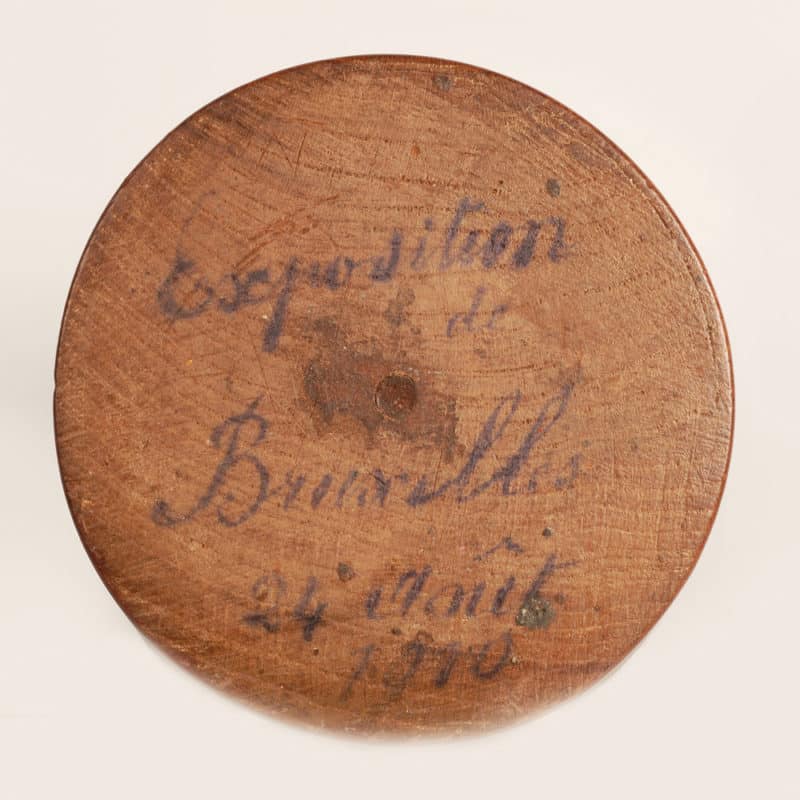 Exposition
de
Bruxelles
24 Août
1910